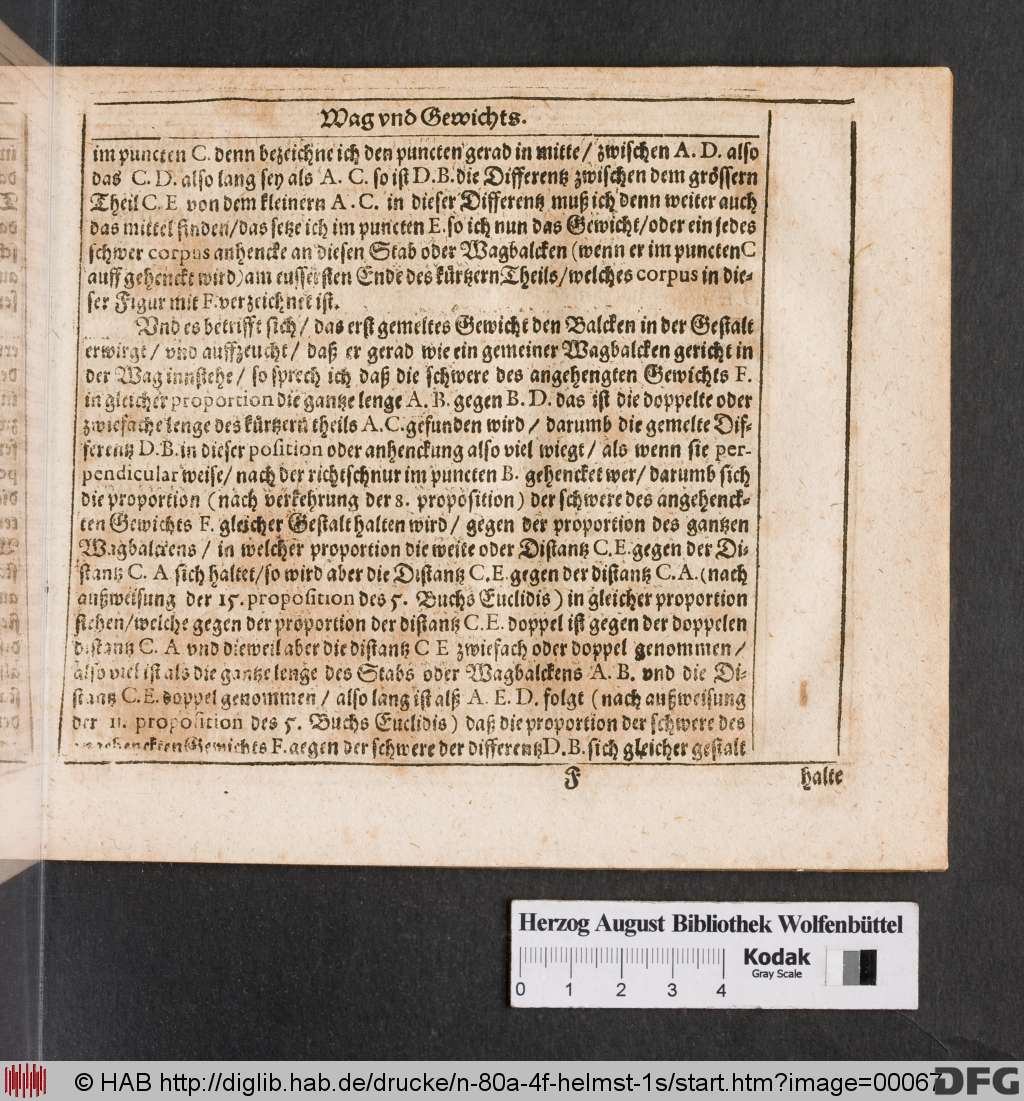 Wag vnd Gewichts.
im puncten C. denn bezeichne ich den puncten gerad in mitte / zwischen A. D. also
das C. D. also lang sey als A. C. so ist D.B. die Differentz zwischen dem grössern
Theil C.E von dem kleinern A.C. in dieser Differentz muß ich denn weiter auch
das mittel finden/das setze ich im puncten E. so ich nun das Gewicht/oder ein jedes
schwer corpus anhencke an diesen Stab oder Wagbalcken (wenn er im puncten C
auff gehenckt wird) am eussersten Ende des kürtzern Theils/welches corpus in die-
ser Figur mit F. verzeichnet ist.
Vnd es betrifft sich / das erst gemeltes Gewicht den Balcken in der Gestalt
erwirgt / vnd auffzeucht / daß er gerad wie ein gemeiner Wagbalcken gericht in
der Wag innstehe / so sprech ich daß die schwere des angehengten Gewichts F.
in gleicher proportion die gantze lenge A. B. gegen B. D. das ist die doppelte oder
zwiefache lenge des kürtzern theils A.C. gefunden wird / darumb die gemelte Dif-
ferentz D.B. in dieser position oder anhenckung also viel wiegt / als wenn sie per-
pendicular weise/ nach der richtschnur im puncten B. gehencket wer/ darumb sich
die proportion (nach verkehrung der 8. proposition) der schwere des angehenck-
ten Gewichts F. gleicher Gestalt halten wird / gegen der proportion des gantzen
Wagbalckens / in welcher proportion die weite oder Distantz C.E. gegen der Di-
stantz C. A sich haltet/so wird aber die Distantz C.E. gegen der distantz C.A. (nach
außweisung der 15. proposition des 5. Buchs Euclidis) in gleicher proportion
stehen/welche gegen der proportion der distantz C.E. doppel ist gegen der doppelen
distantz C. A vnd dieweil aber die distantz C E zwiefach oder doppel genommen /
also viel ist als die gantze lenge des Stabs oder Wagbalckens A. B. vnd die Di-
stantz C.E. doppel genommen / also lang ist alß A. E. D. folgt (nach außweisung
der 11. proposition des 5. Buchs Euclidis) daß die proportion der schwere des
angehenckten Gewichts F. gegen der schwere der differentz D.B. sich gleicher gestalt
F halte
Herzog August Bibliothek Wolfenbüttel
Kodak
Gray Scale
0 1 2 3 4
© HAB http://diglib.hab.de/drucke/n-80a-4f-helmst-1s/start.htm?image=00067
DFG